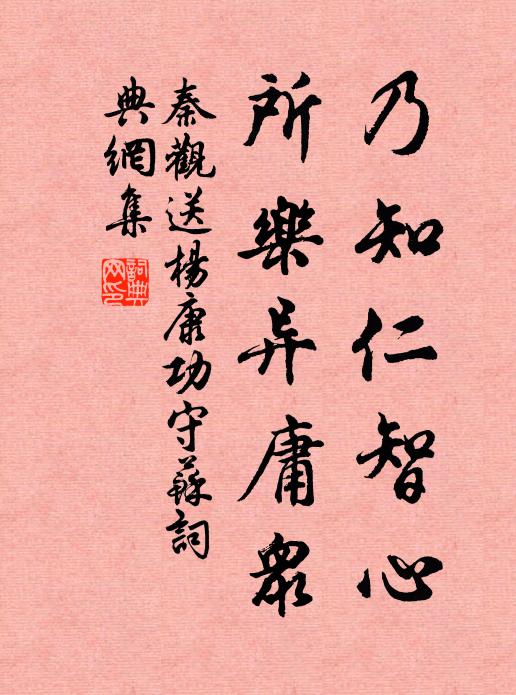 乃知仁智心
所樂异庸衆
秦觀送楊康功守蘇詞
典網集
詞典
网印